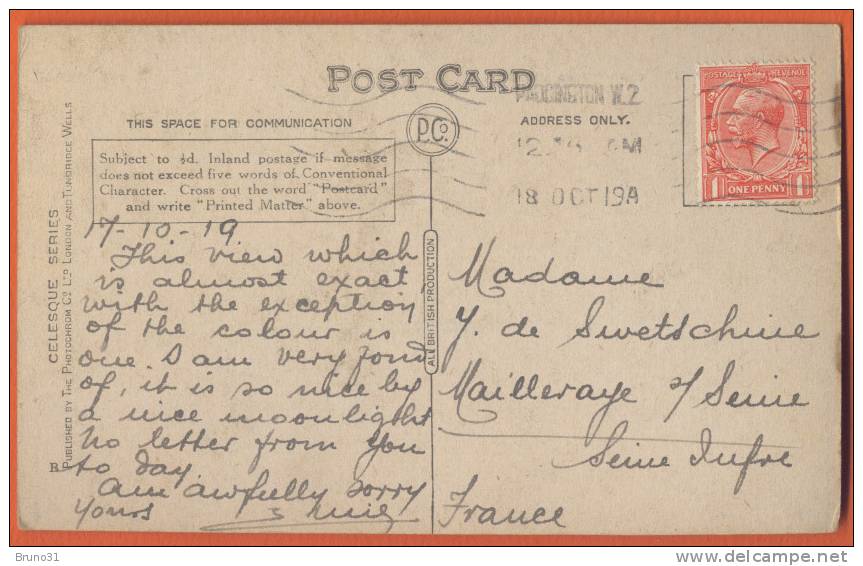 POST CARD
THIS SPACE FOR COMMUNICATION
ADDRESS ONLY.
P.Co.
Subject to ½d. Inland postage if message
does not exceed five words of Conventional
Character. Cross out the word "Postcard"
and write "Printed Matter" above.
17-10-19
This view which
is almost exact,
with the exception
of the colour is
one I am very fond
of, it is so nice by
a nice moonlight
No letter from you
to day.
am awfully sorry
yours
PADDINGTON W.2
18 OCT 19A
POSTAGE REVENUE
1 ONE PENNY 1
Madame
Y. de Swetschine
Mailleraye s/ Seine
Seine Infre
France
CELESQUE SERIES
PUBLISHED BY THE PHOTOCHROM CO LTD LONDON AND TUNBRIDGE WELLS
R
ALL BRITISH PRODUCTION
Bruno31
www.delcampe.net